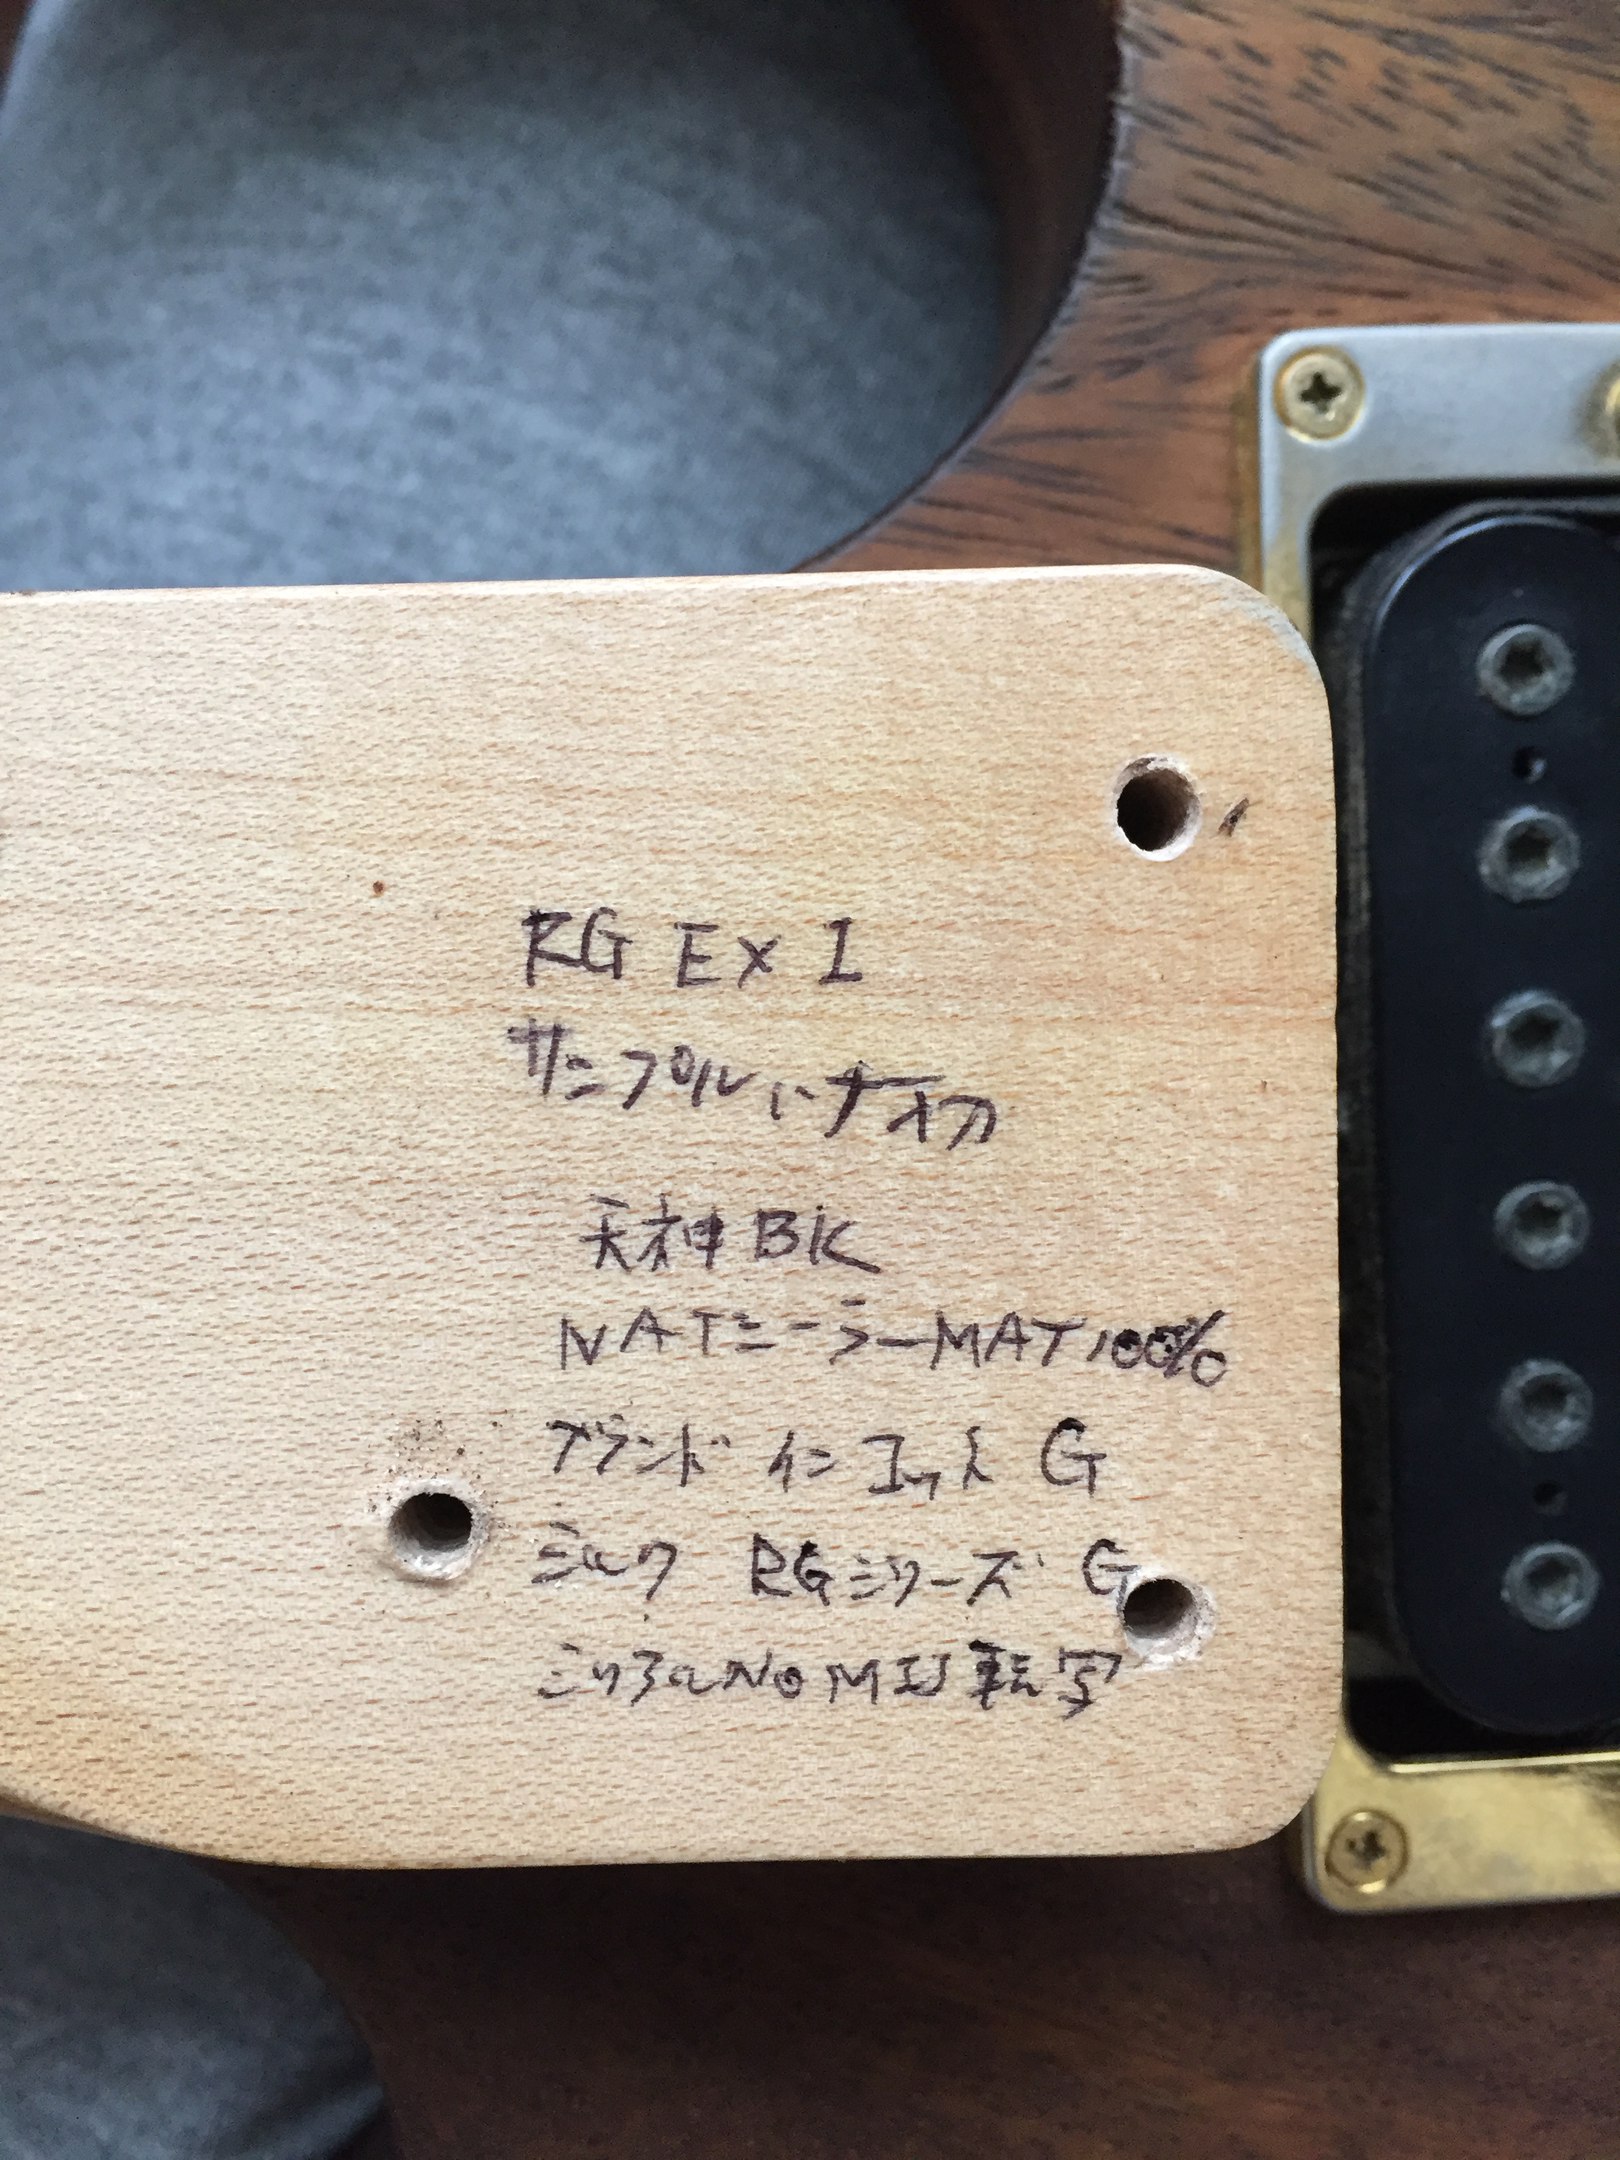 RG EX I
サンプル
天神 BK
NATシーラーMAT100%
ブランド インレイ G
シルク RGシリーズ G
シリアルNo MIJ 転写